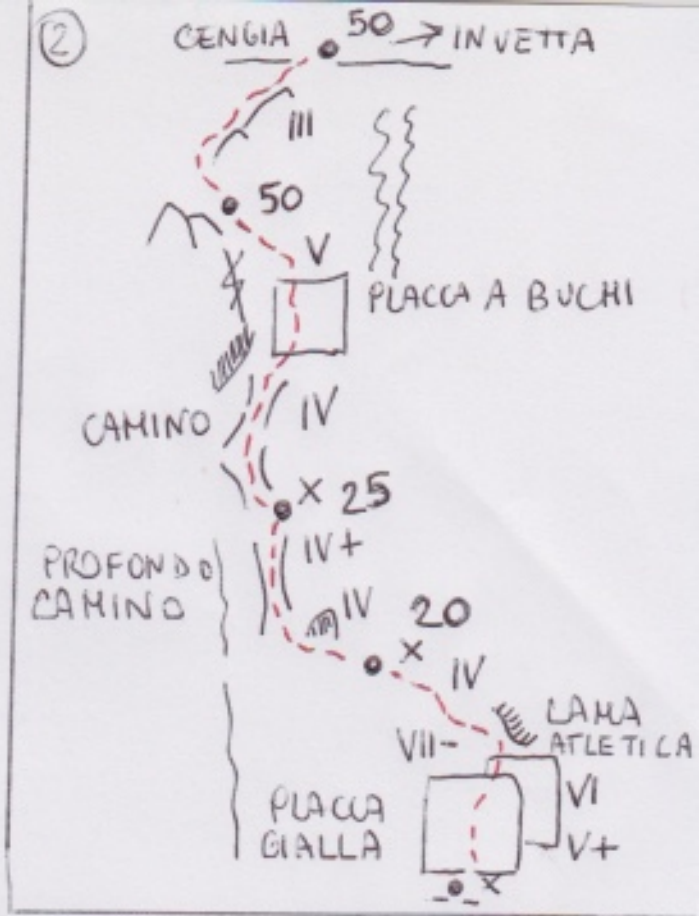 2
CENGIA 50 → IN VETTA
III
50
V
PLACCA A BUCHI
CAMINO IV
X 25
PROFONDO
CAMINO
IV+
IV
20
X
IV
LAMA
ATLETICA
VII-
PLACCA
GIALLA
VI
V+
X